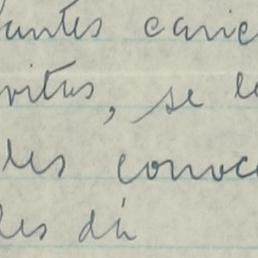 untes caric
vitas, se le
les convoc
les dá